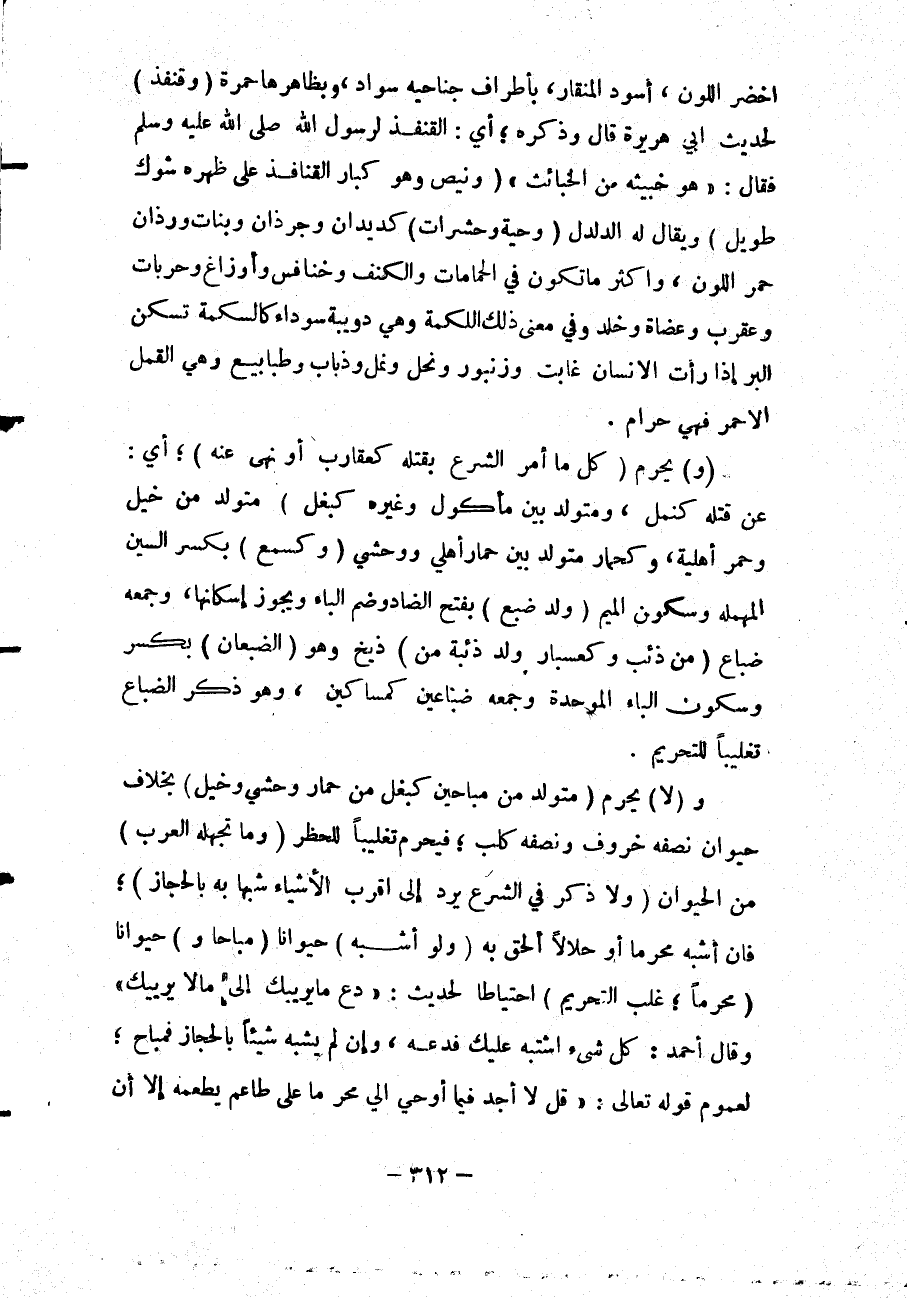 اخضر اللون ، أسود المنقار، بأطراف جناحيه سواد ،وبظاهرها حمرة ( وقنفذ )
لحديث ابي هريرة قال وذكره ؛ أي : القنفذ لرسول الله صلى الله عليه وسلم
فقال : « هو خبيثه من الخبائث » ( ونيص وهو كبار القنافذ على ظهره شوك
طويل ) ويقال له الدلدل ( وحية وحشرات) كديدان وجرذان وبنات وردان
حمر اللون ، واكثر ماتكون في الحمامات والكنف وخنافس وأوزاغ وحربات
وعقرب وعضاة وخلد وفي معنى ذلك اللكمة وهي دويبة سوداء كالسكمة تسكن
البر إذا رأت الانسان غابت وزنبور ونحل ونمل وذباب وطبابيع وهي القمل
الاحمر فهي حرام .
(و) يحرم ( كل ما أمر الشرع بقتله كعقارب أو نهى عنه ) ؛ أي :
عن قتله كنمل ، ومتولد بين مأكول وغيره كبغل ) متولد من خيل
وحمر أهلية، وكحمار متولد بين حمار أهلي ووحشي ( وكسمع ) بكسر السين
المهمله وسكون الميم ( ولد ضبع ) بفتح الضاد وضم الباء ويجوز إسكانها، وجمعه
ضباع ( من ذئب وكعسبار ولد ذئبة من ) ذيخ وهو ( الضبعان ) بكسر
وسكون الباء الموحدة وجمعه ضباعين كمساكين ، وهو ذكر الضباع
تغليباً للتحريم .
و (لا) يحرم ( متولد من مباحين كبغل من حمار وحشي وخيل) بخلاف
حيوان نصفه خروف ونصفه كلب ؛ فيحرم تغليباً للحظر ( وما تجهله العرب )
من الحيوان ( ولا ذكر في الشرع يرد إلى اقرب الأشياء شبها به بالحجاز ) ؛
فان أشبه محرما أو حلالاً ألحق به ( ولو أشبه ) حيوانا ( مباحا و ) حيوانا
( محرماً ؛ غلب التحريم ) احتياطا لحديث : « دع مايريبك إلى مالا يريبك»
وقال أحمد : كل شيء اشتبه عليك فدعه ، وإن لم يشبه شيئاً بالحجاز فمباح ؛
لعموم قوله تعالى : « قل لا أجد فيما أوحي الي محر ما على طاعم يطعمه إلا أن
– ٣١٢ –